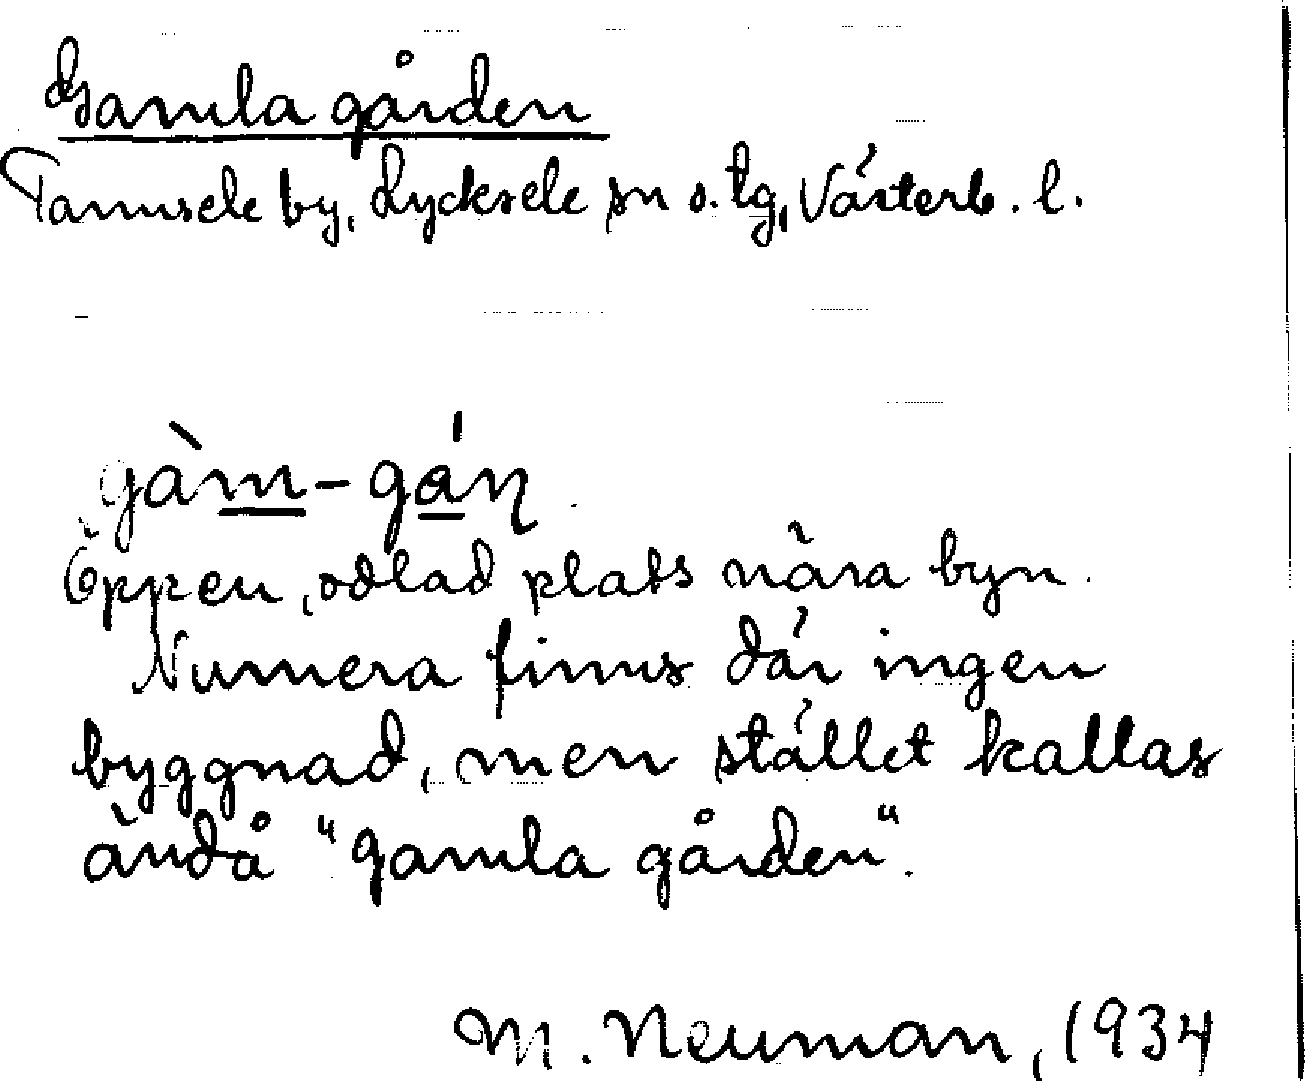 Gamla gården
Tannsele by, Lycksele sn s. tg, Västerb. l.
gàm-gáɳ
Öppen, odlad plats nära byn.
Numera finns där ingen
byggnad, men stället kallas
ändå "gamla gården".
M. Neuman, 1934